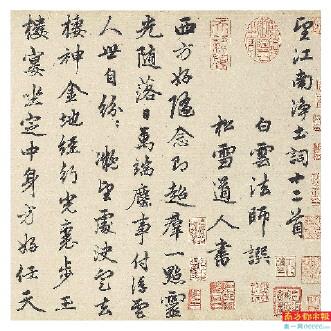 望江南淨土詞十二首
白雲法師譔
松雪道人書
西方好隨念即超羣一點靈
光隨落日萬端塵事付浮雲
人世自紛〻凝望處決定去
棲神金地經行光裏步玉
樓宴坐定中身方好任天
南方都市報